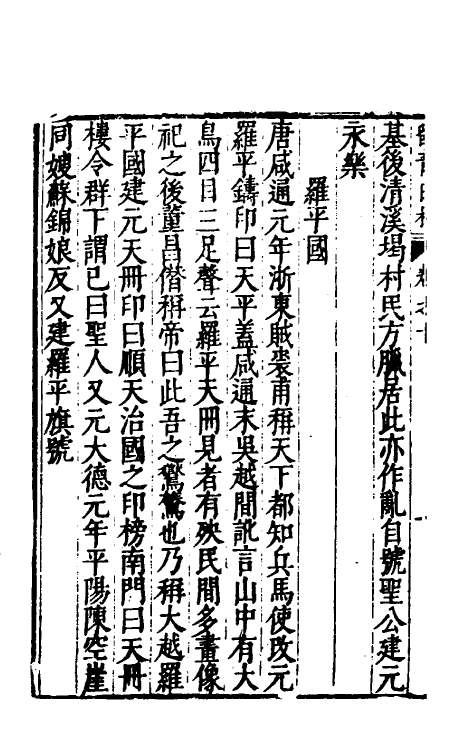 基後清溪堨村民方臘居此亦作亂自號聖公建元
永樂
羅平國
唐咸通元年浙東賊裘甫稱天下都知兵馬使改元
羅平鑄印曰天平蓋咸通末吳越間訛言山中有大
鳥四目三足聲云羅平天冊見者有殃民間多畫像
祀之後董昌僭稱帝曰此吾之鸑鷟也乃稱大越羅
平國建元天冊印曰順天治國之印榜南門曰天冊
樓令群下謂己曰聖人又元大德元年平陽陳空崖
同嫂蘇錦娘反又建羅平旗號